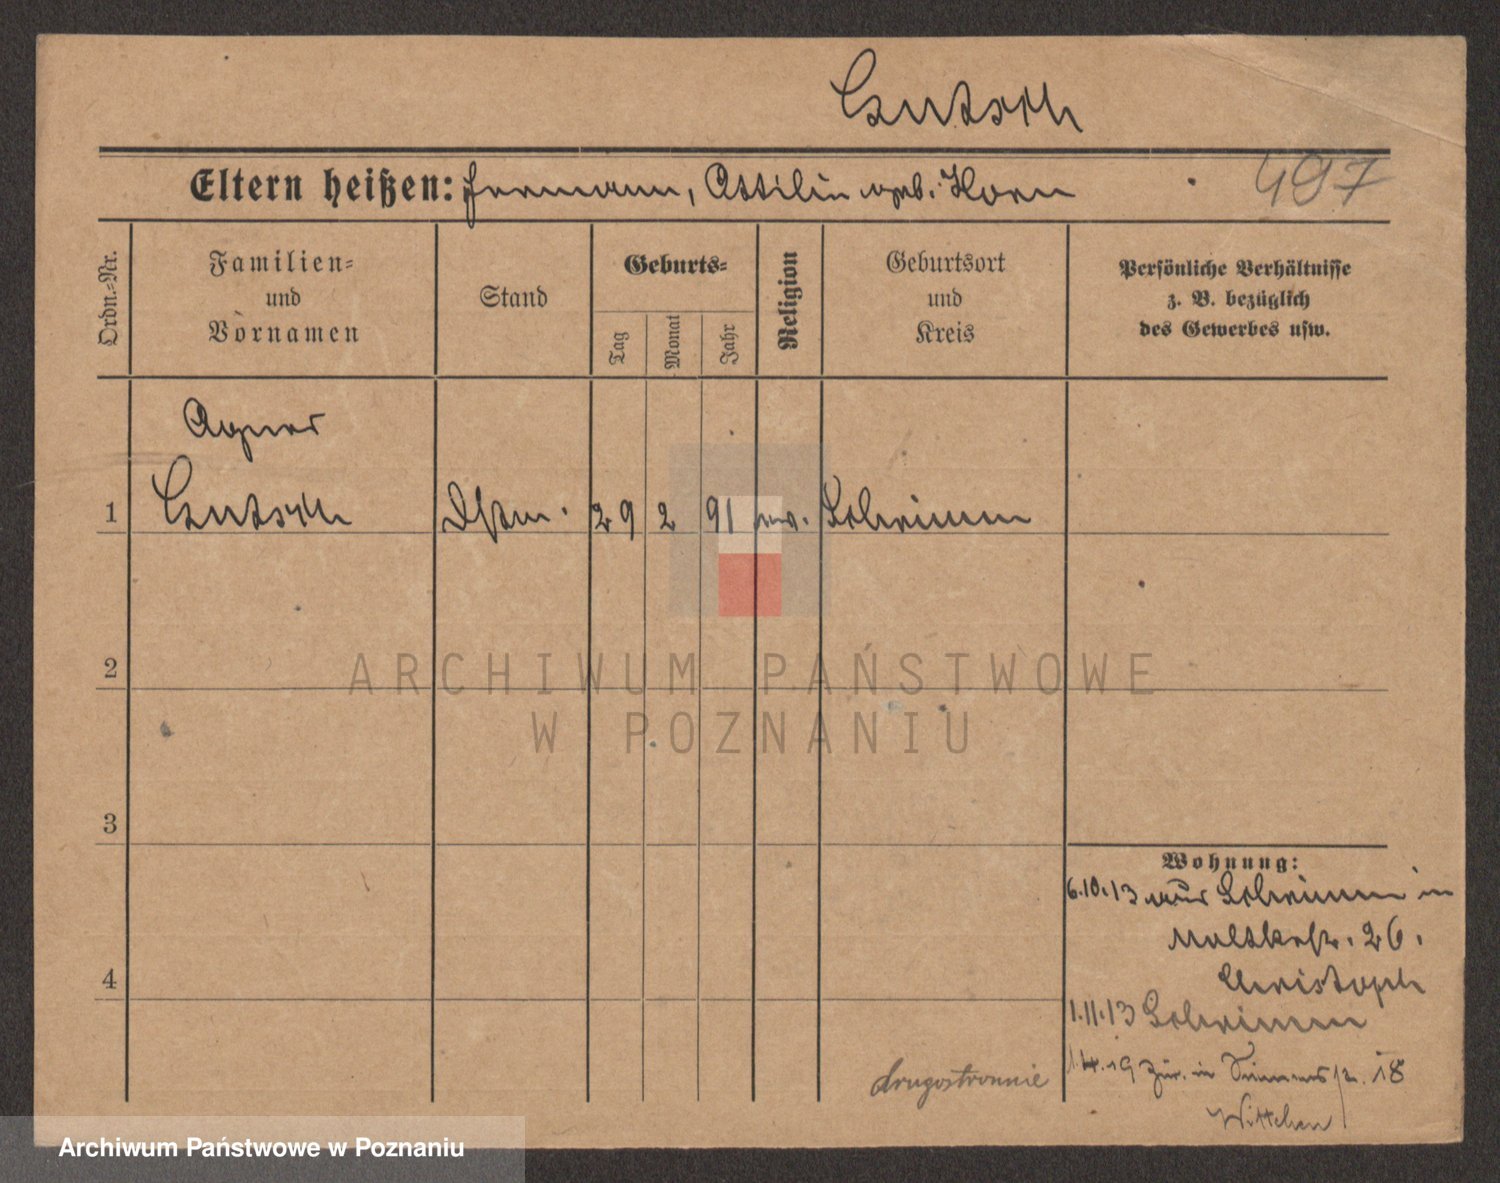 497
Eltern heißen: Hermann, Ottilie geb. Horn
Ordn.-Nr.
Familien-
und
Vornamen
Stand
Geburts-
Tag
Monat
Jahr
Religion
Geburtsort
und
Kreis
Persönliche Verhältnisse
z. B. bezüglich
des Gewerbes usw.
Agnes
1
29 2 91 ev. Schrimm
2
ARCHIWUM PAŃSTWOWE
W POZNANIU
3
4
Wohnung:
6.10.13 aus Schrimm in
Moltkestr. 26.
Christoph
1.11.13 Schrimm
1.4.19 zur. in 18
Wittchen
drugostronnie
Archiwum Państwowe w Poznaniu